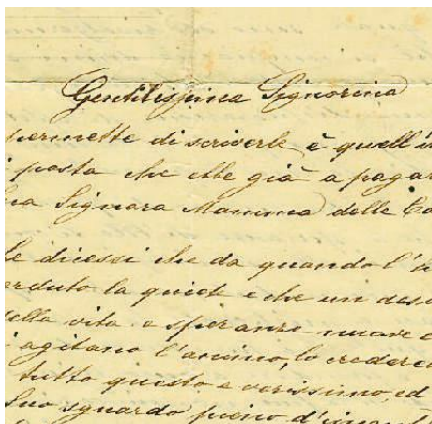 Gentilissima Signorina
permette di scriverle è quell'i
posta che elle già a pagar
Signora Mamma delle
le dicessi che da quando l'h
perduto la quiete e che un des
della vita e speranze nuove
agitano l'animo, lo credere
tutto questo e verissimo, ed
Suo sguardo pieno d'